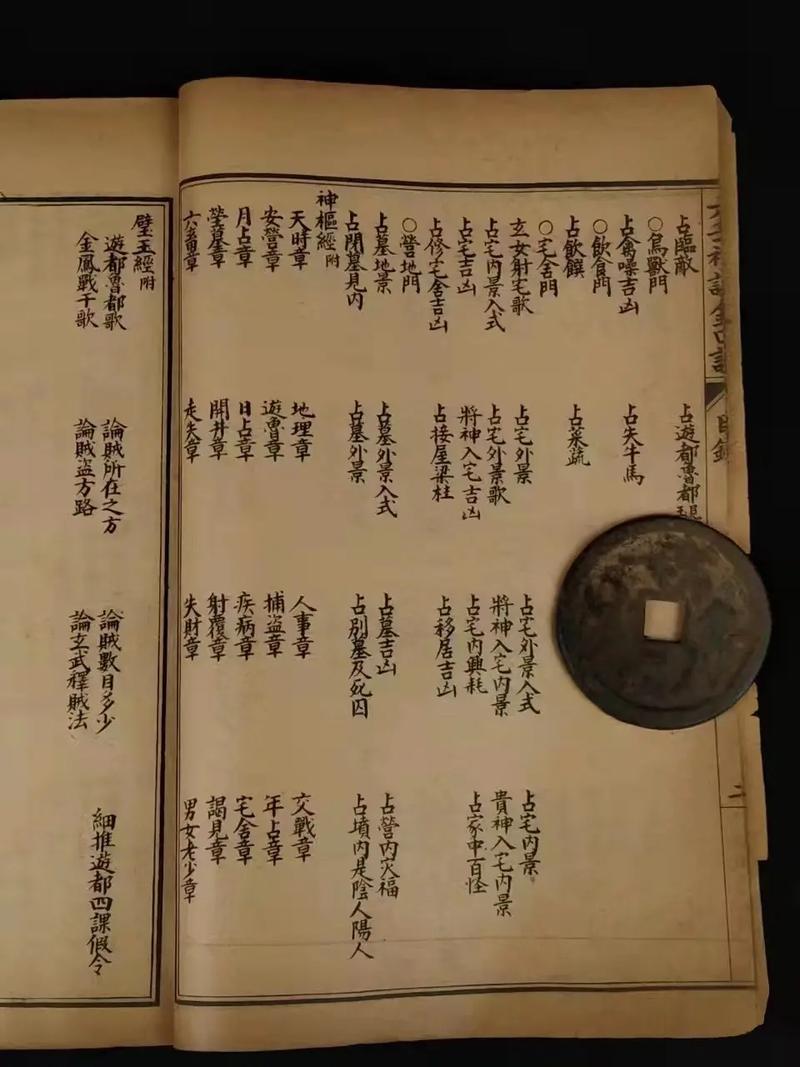 六壬神課金口訣 目錄 二
占臨敵 占遊都魯都
〇鳥獸門
占禽噪吉凶 占失牛馬
〇飲食門
占飲饌 占菜蔬
〇宅舍門
玄女射宅歌 占宅外景 占宅外景入式 占宅內景
占宅內景入式 占宅外景歌 將神入宅內景 貴神入宅內景
占宅吉凶 將神入宅吉凶 占宅內興耗 占家中百怪
占修宅舍吉凶 占接屋梁柱 占移居吉凶
〇營地門
占墓地景 占墓外景入式 占墓吉凶 占營內灾福
占開墓見內 占墓外景 占別墓及死囚 占墳內是陰人陽人
神樞經附
天時章 地理章 人事章 交戰章
安營章 遊魯章 捕盜章 年占章
月占章 日占章 疾病章 宅舍章
章 開井章 射覆章 謁見章
六畜章 走失章 失財章 男女老少章
璧玉經附
遊都魯都歌 論賊所在之方 論賊數目多少 細推遊都四課假令
金鳳戰干歌 論賊盜方路 論玄武釋賊法